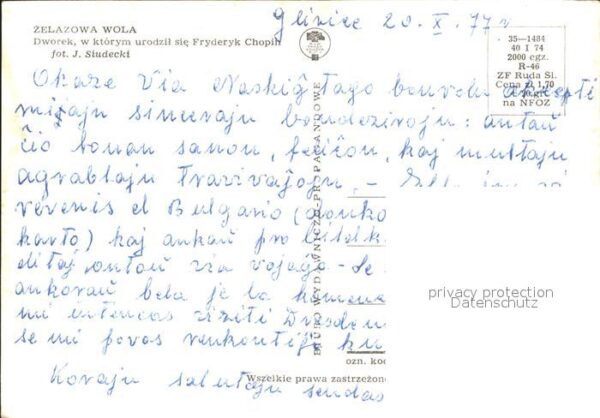 Gliwice 20. X. 77 r
ŻELAZOWA WOLA
Dworek, w którym urodził się Fryderyk Chopin
fot. J. Siudecki
35—1484
40 I 74
2000 egz.
R-46
ZF Ruda Śl.
Cena zł 1,70
na NFOZ
BIURO WYDAWNICZO-PROPAGANDOWE
Okaze Via Naskiĝtago bonvolu akcepti
miajn sincerajn bondezirojn: antaŭ
ĉio bonan sanon, feliĉon, kaj multajn
agrablajn travivaĵojn. —
revenis el Bulgario (danko
karto) kaj ankaŭ pro bildk
ditaj antaŭ via vojaĝo - Se
ankoraŭ bela je la komenc
mi intencas viziti Dresden
se mi povos renkontiĝi kun
Korajn salutojn sendas
ozn. kod
Wszelkie prawa zastrzeżone
privacy protection
Datenschutz